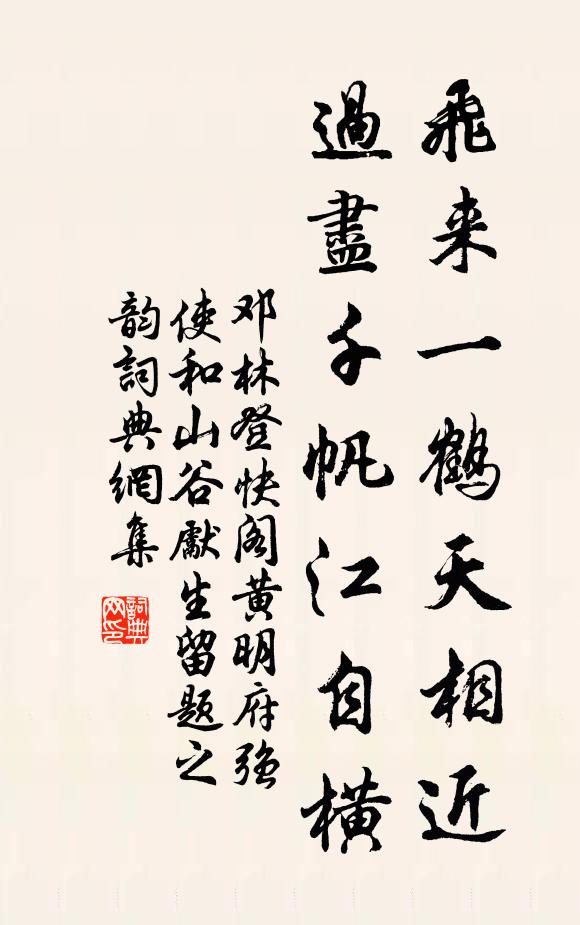 飛来一鶴天相近
過盡千帆江自橫
邓林登快阁黄明府强
使和山谷獻生留题之
韵詞典網集
詞典网印